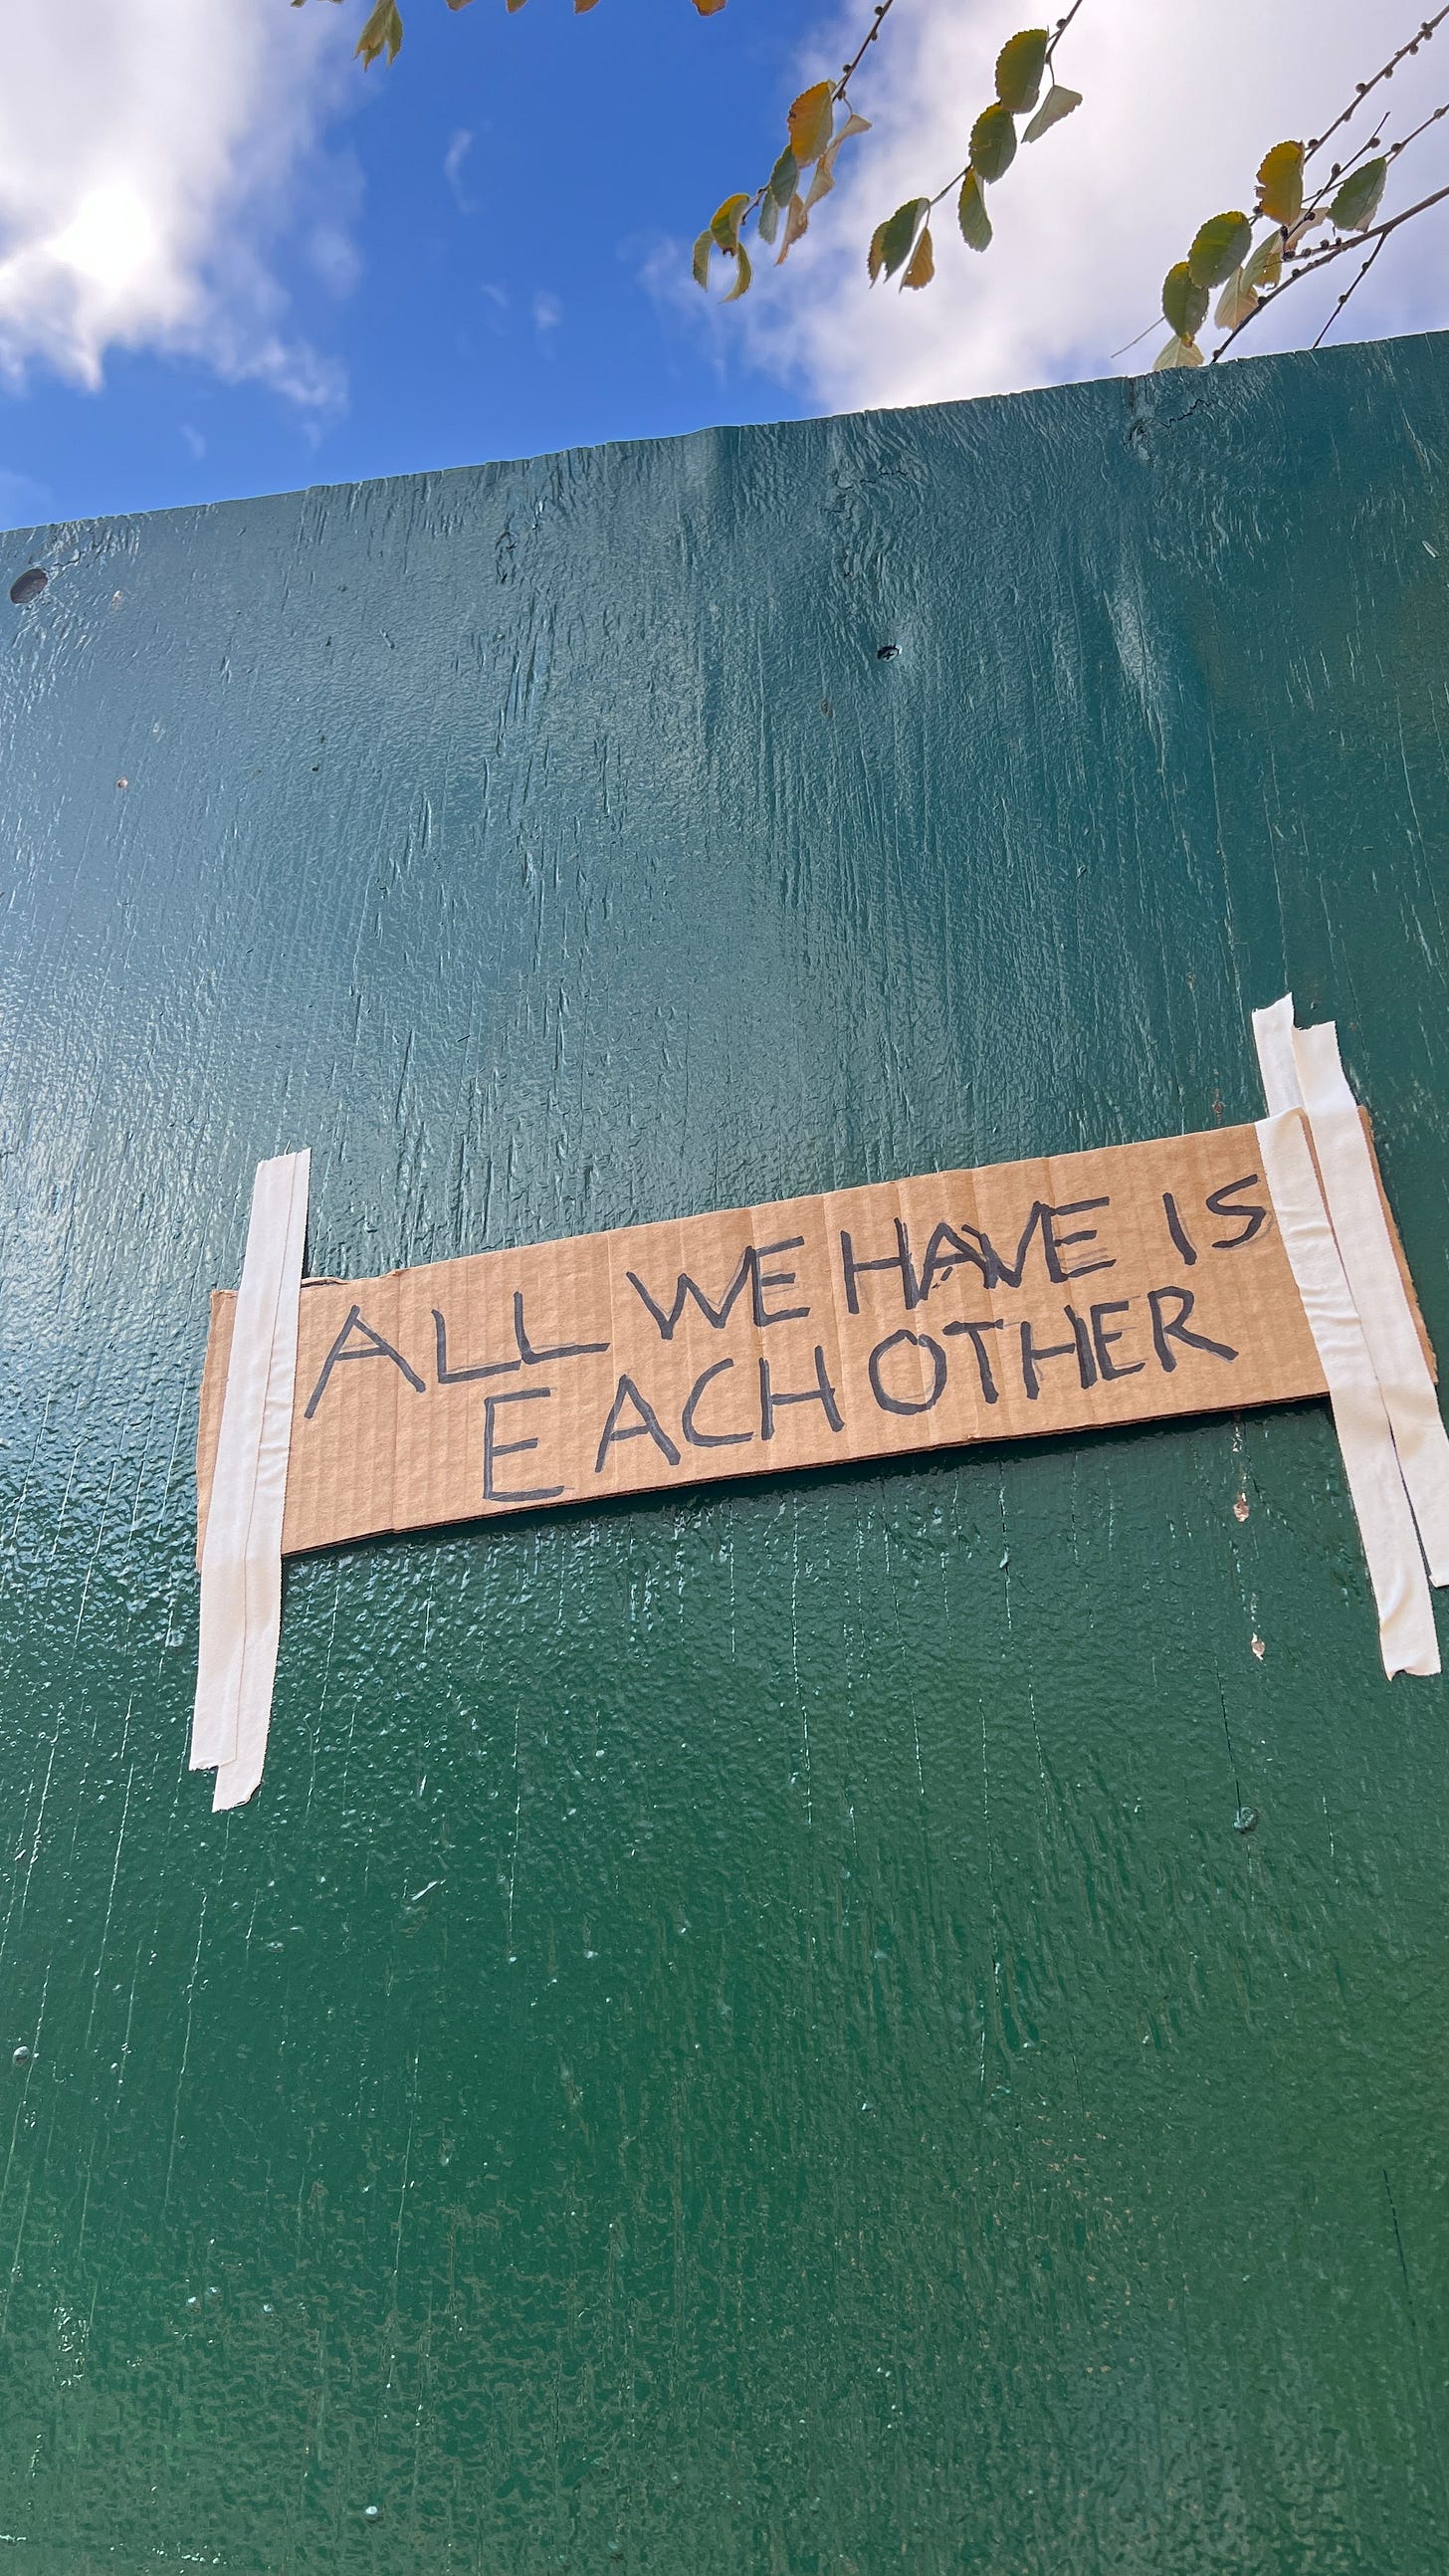 ALL WE HAVE IS
EACH OTHER